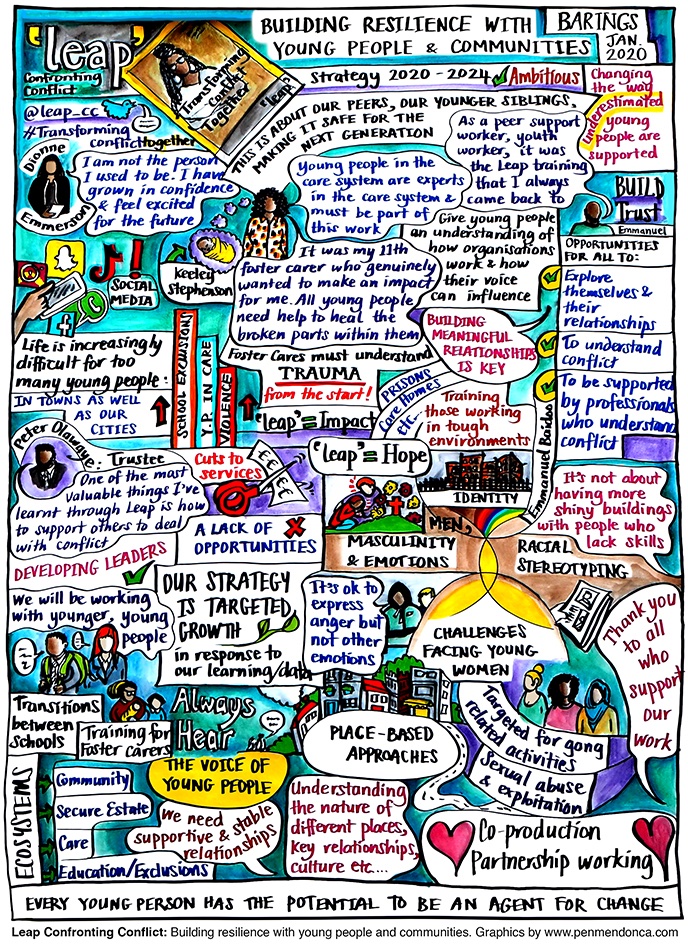 'leap'
Confronting
Conflict
BUILDING RESILIENCE WITH
YOUNG PEOPLE & COMMUNITIES
BARINGS
JAN.
2020
Strategy 2020 - 2024
Ambitious
Transforming
Conflict
Together
'leap'
@leap_cc
#Transforming
conflicttogether
THIS IS ABOUT OUR PEERS, OUR YOUNGER SIBLINGS,
MAKING IT SAFE FOR THE
NEXT GENERATION
Changing
the way
underestimated
young
people are
supported
Dionne
Emmerson
I am not the person
I used to be. I have
grown in confidence
& feel excited
for the future
Young people in the
care system are experts
in the care system &
must be part of
this work
As a peer support
worker, youth
worker, it was
the Leap training
that I always
came back to
BUILD
Trust
Emmanuel
Keeley
Stephenson
It was my 11th
foster carer who genuinely
wanted to make an impact
for me. All young people
need help to heal the
broken parts within them
Give young people
an understanding of
how organisations
work & how
their voice
can influence
OPPORTUNITIES
FOR ALL TO:
Explore
themselves &
their
relationships
To understand
conflict
To be supported
by professionals
who understand
conflict
Emmanuel Baidoo
SOCIAL
MEDIA
Life is increasingly
difficult for too
many young people:
IN TOWNS AS WELL
AS OUR
CITIES
SCHOOL EXCLUSIONS
Y.P. IN CARE
VIOLENCE
Foster Cares must understand
TRAUMA
from the start!
'leap' = Impact
BUILDING
MEANINGFUL
RELATIONSHIPS
IS KEY
PRISONS
Care Homes
etc
Training
those working
in tough
environments
Peter Olawaye: Trustee
One of the most
valuable things I've
learnt through Leap is how
to support others to deal
with conflict
Cuts to
services
££££
'leap' = Hope
IDENTITY
It's not about
having more
shiny buildings
with people who
lack skills
A LACK OF
OPPORTUNITIES
MEN,
MASCULINITY
& EMOTIONS
RACIAL
STEREOTYPING
DEVELOPING LEADERS
We will be working
with younger, young
people
OUR STRATEGY
IS TARGETED
GROWTH
in response to
our learning/data
It's ok to
express
anger but
not other
emotions
CHALLENGES
FACING YOUNG
WOMEN
Thank you
to all
who
support
our
work
Transitions
between
schools
Training for
Foster carers
Always
Hear
THE VOICE OF
YOUNG PEOPLE
PLACE-BASED
APPROACHES
Targeted for gang
related activities
Sexual abuse
& exploitation
ECOSYSTEMS
Community
Secure Estate
Care
Education/Exclusions
We need
supportive & stable
relationships
Understanding
the nature of
different places,
key relationships,
culture etc....
Co-production
Partnership working
EVERY YOUNG PERSON HAS THE POTENTIAL TO BE AN AGENT FOR CHANGE
Leap Confronting Conflict: Building resilience with young people and communities. Graphics by www.penmendonca.com